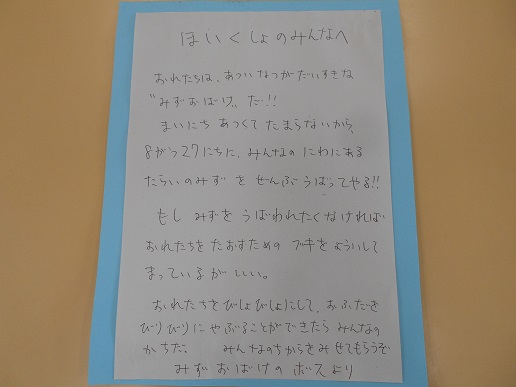 ほいくしょのみんなへ
おれたちは、あついなつがだいすきな
"みずおばけ〟だ!!
まいにち あつくて たまらないから、
8がつ27にちに、みんなの にわにある
たらいのみず を ぜんぶ うばってやる!!
もし みずを うばわれたくなければ
おれたちを たおすための ブキを よういして
まっているが いい。
おれたちを びしょびしょにして、おふだを
びりびりに やぶることが できたら みんなの
かちだ。 みんなのちからを みせてもらうぞ
みずおばけの ボスより